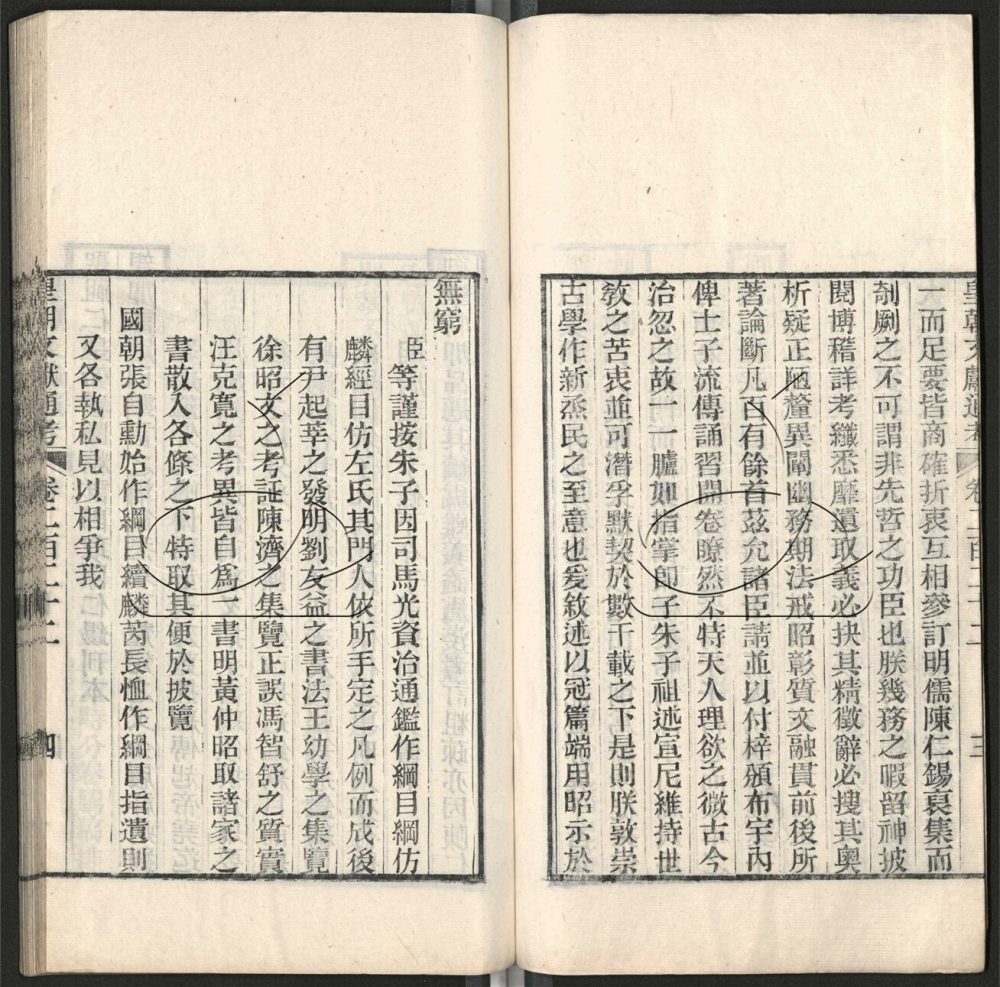 皇朝文獻通考 卷二百二十二 三
一而足要皆商確折衷互相參訂明儒陳仁錫裒集而
剞劂之不可謂非先哲之功臣也朕幾務之暇留神披
閱博稽詳考纖悉靡遺取義必抉其精徵辭必搜其奧
析疑正陋釐異闡幽務期法戒昭彰質文融貫前後所
著論斷凡百有餘首茲允諸臣請並以付梓頒布宇內
俾士子流傳誦習開卷瞭然不特天人理欲之微古今
治忽之故一一臚如指掌即子朱子祖述宣尼維持世
敎之苦衷並可潛孚默契於數千載之下是則朕敦崇
古學作新烝民之至意也爰敘述以冠篇端用昭示於
無窮
臣等謹按朱子因司馬光資治通鑑作綱目綱仿
麟經目仿左氏其門人依所手定之凡例而成後
有尹起莘之發明劉友益之書法王幼學之集覽
徐昭文之考証陳濟之集覽正誤馮智舒之質實
汪克寬之考異皆自爲一書明黃仲昭取諸家之
書散入各條之下特取其便於披覽
國朝張自勳始作綱目續麟芮長恤作綱目指遺則
又各執私見以相爭我
皇朝文獻通考 卷二百二十二 四